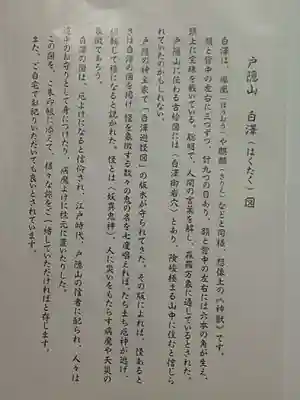 戸隠山　白澤（はくたく）図
白澤は、鳳凰（ほうおう）や麒麟（きりん）などと同様、想像上の〈神獣〉です。
顔と背中の左右に三つずつ、計九つの目あり、頭と背中の左右には六本の角が生え、
頭上に宝珠を戴いている。聡明で、人間の言葉を解し、森羅万象に通じるとされた。
戸隠山に伝わる古絵図には〈白澤御岩穴〉とあり、険峻極まる山中に住むと信じら
れていたのかもしれない。
戸隠の神主家で「白澤避怪図」の版木が守られてきた。その版によれば、怪あると
きは白澤の図を掲げ、怪を象徴する数々の鬼の名を七度唱えれば、たちまち厄神が逃げ、
転じて福になると説かれた。怪とは〈妖異鬼神〉、人に災いをもたらす病魔や天災の
象徴であろう。
白澤の図は、厄よけになると信仰され、江戸時代、戸隠山の信者に配られ、人々は
道中のお守りとして身につけたり、病魔よけに枕元に置いたりした。
この図を、ご朱印帳に添えて、様々な旅をご一緒していただければと存じます。
また、ご自宅でお祀りいただいても良いとされています。